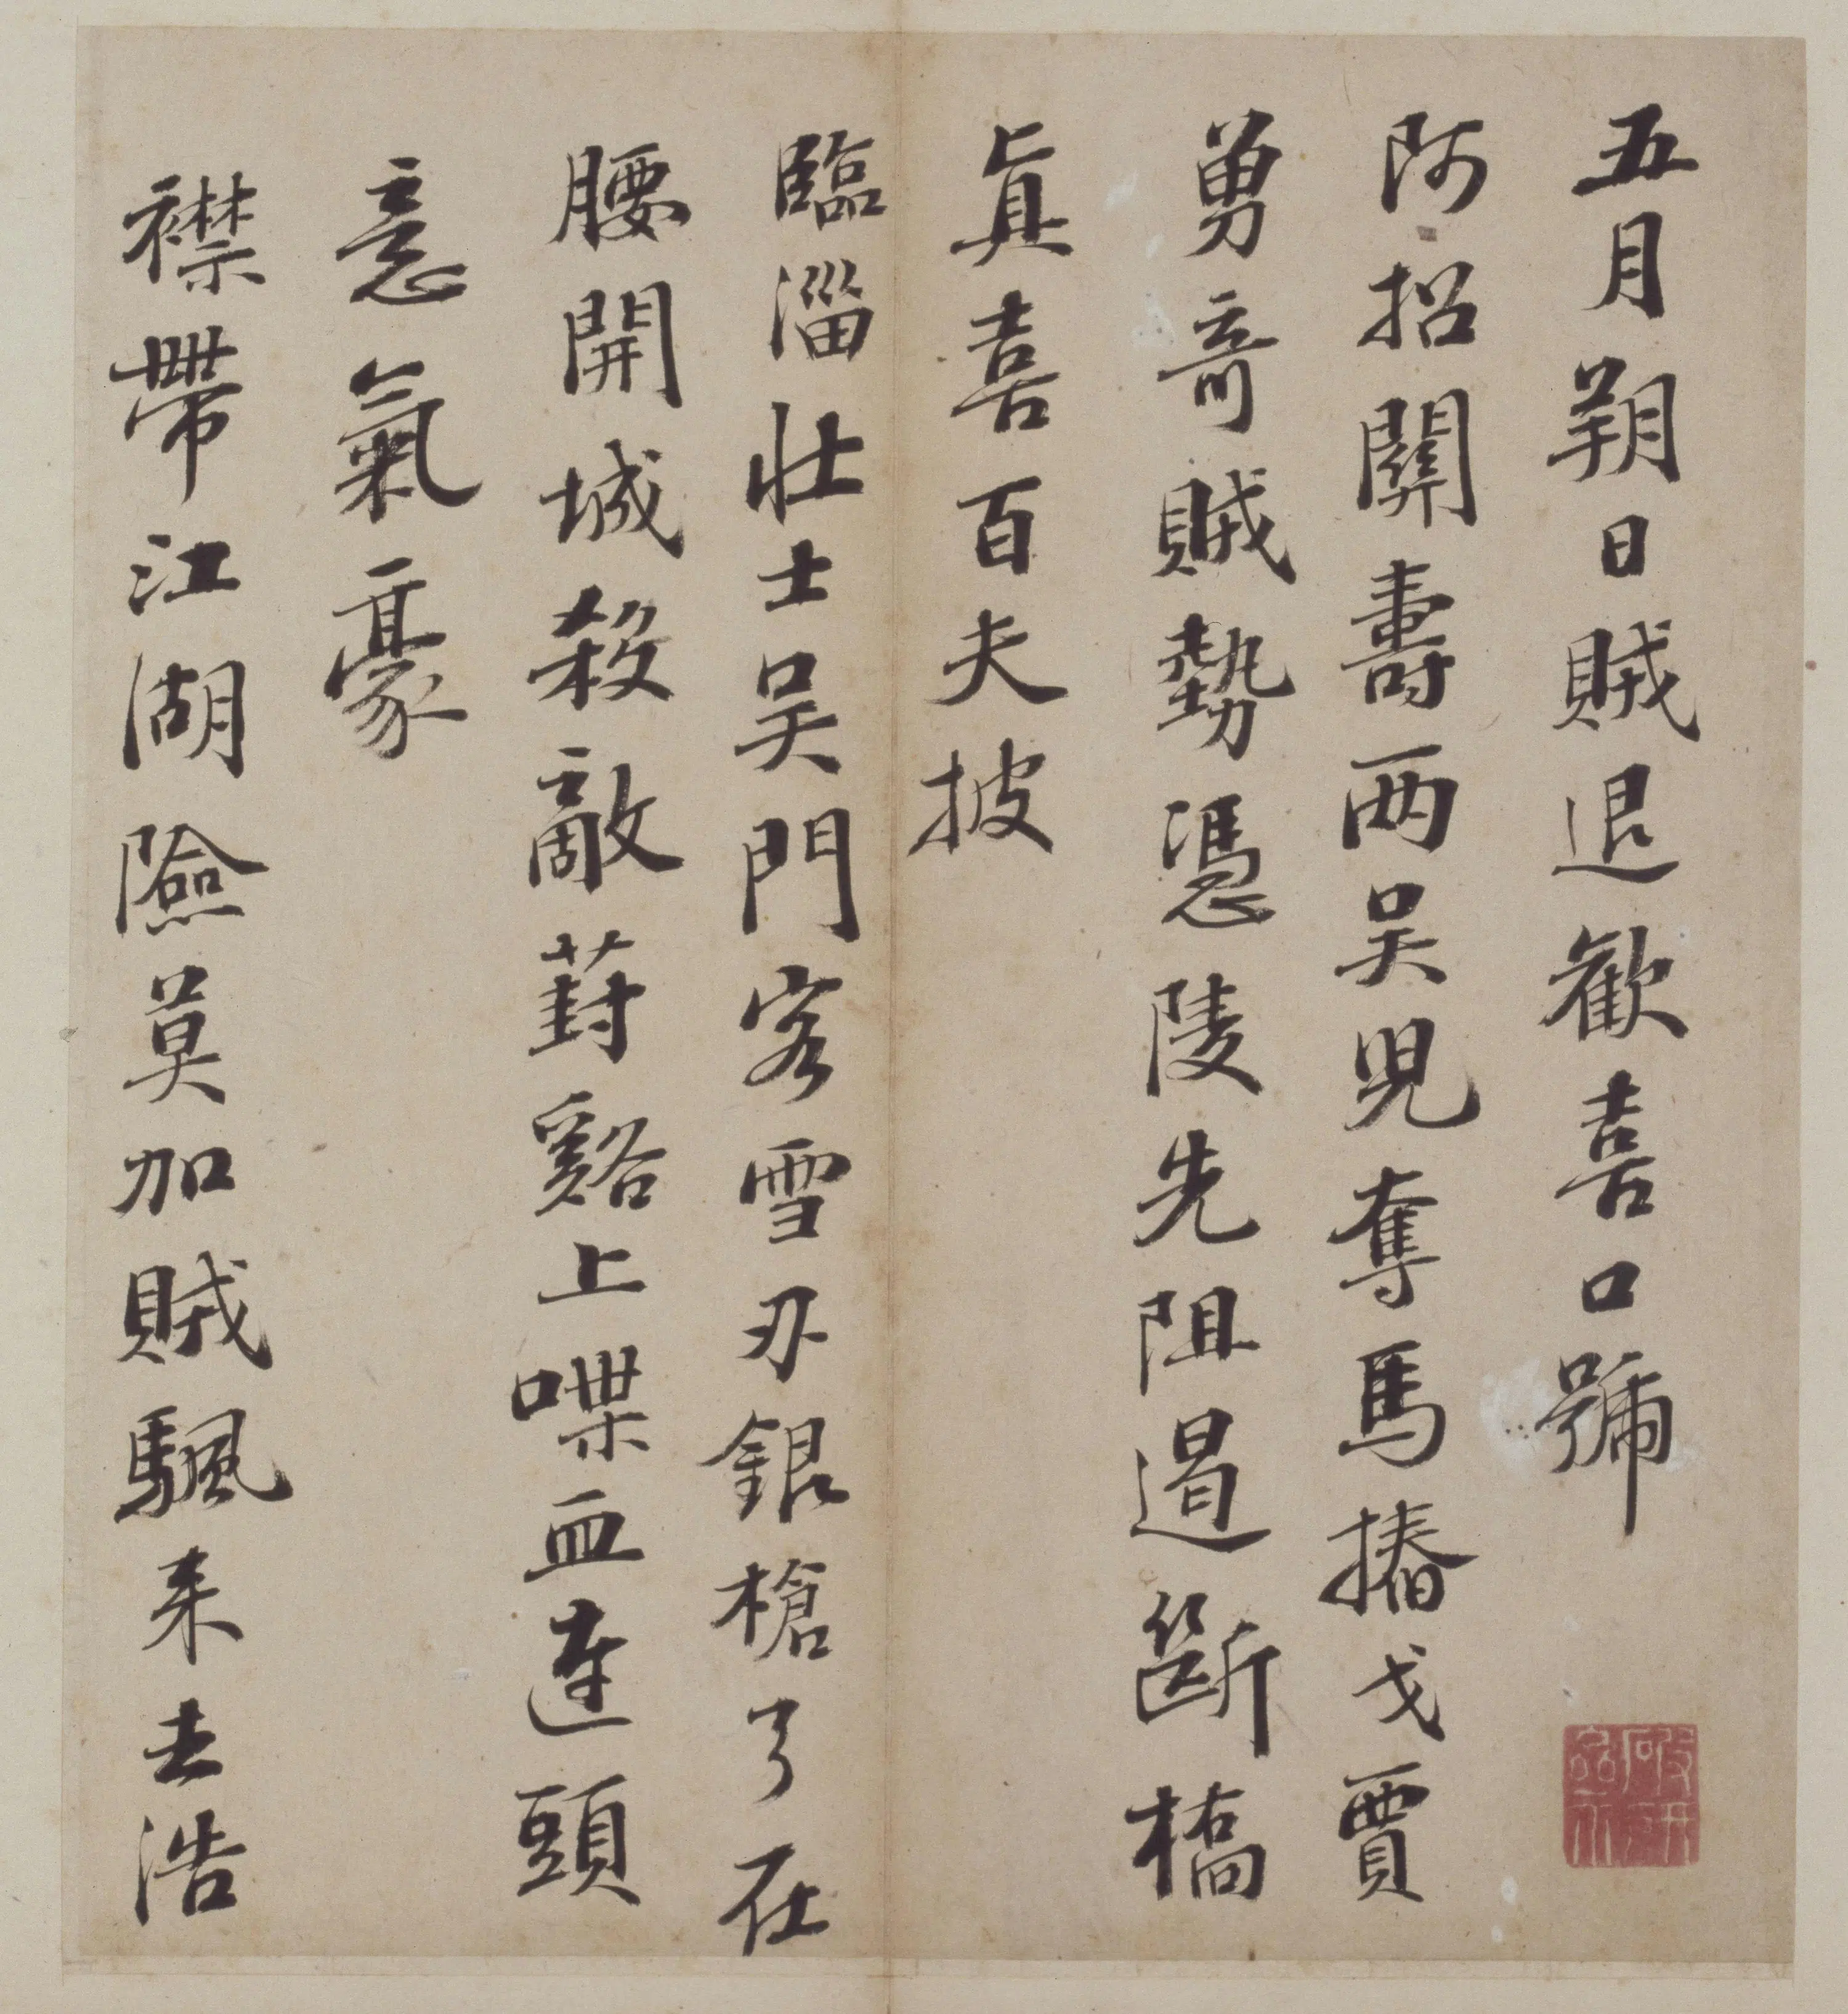 五月朔日賊退歡喜口號
阿招關壽兩吳兒奪馬摏戈賈
勇奇賊勢憑陵先阻遏斷橋
真喜百夫披
臨淄壯士吳門客雪刃銀槍了在
腰開城殺敵葑谿上喋血連頭
意氣豪
襟帶江湖險莫加賊颿来去浩